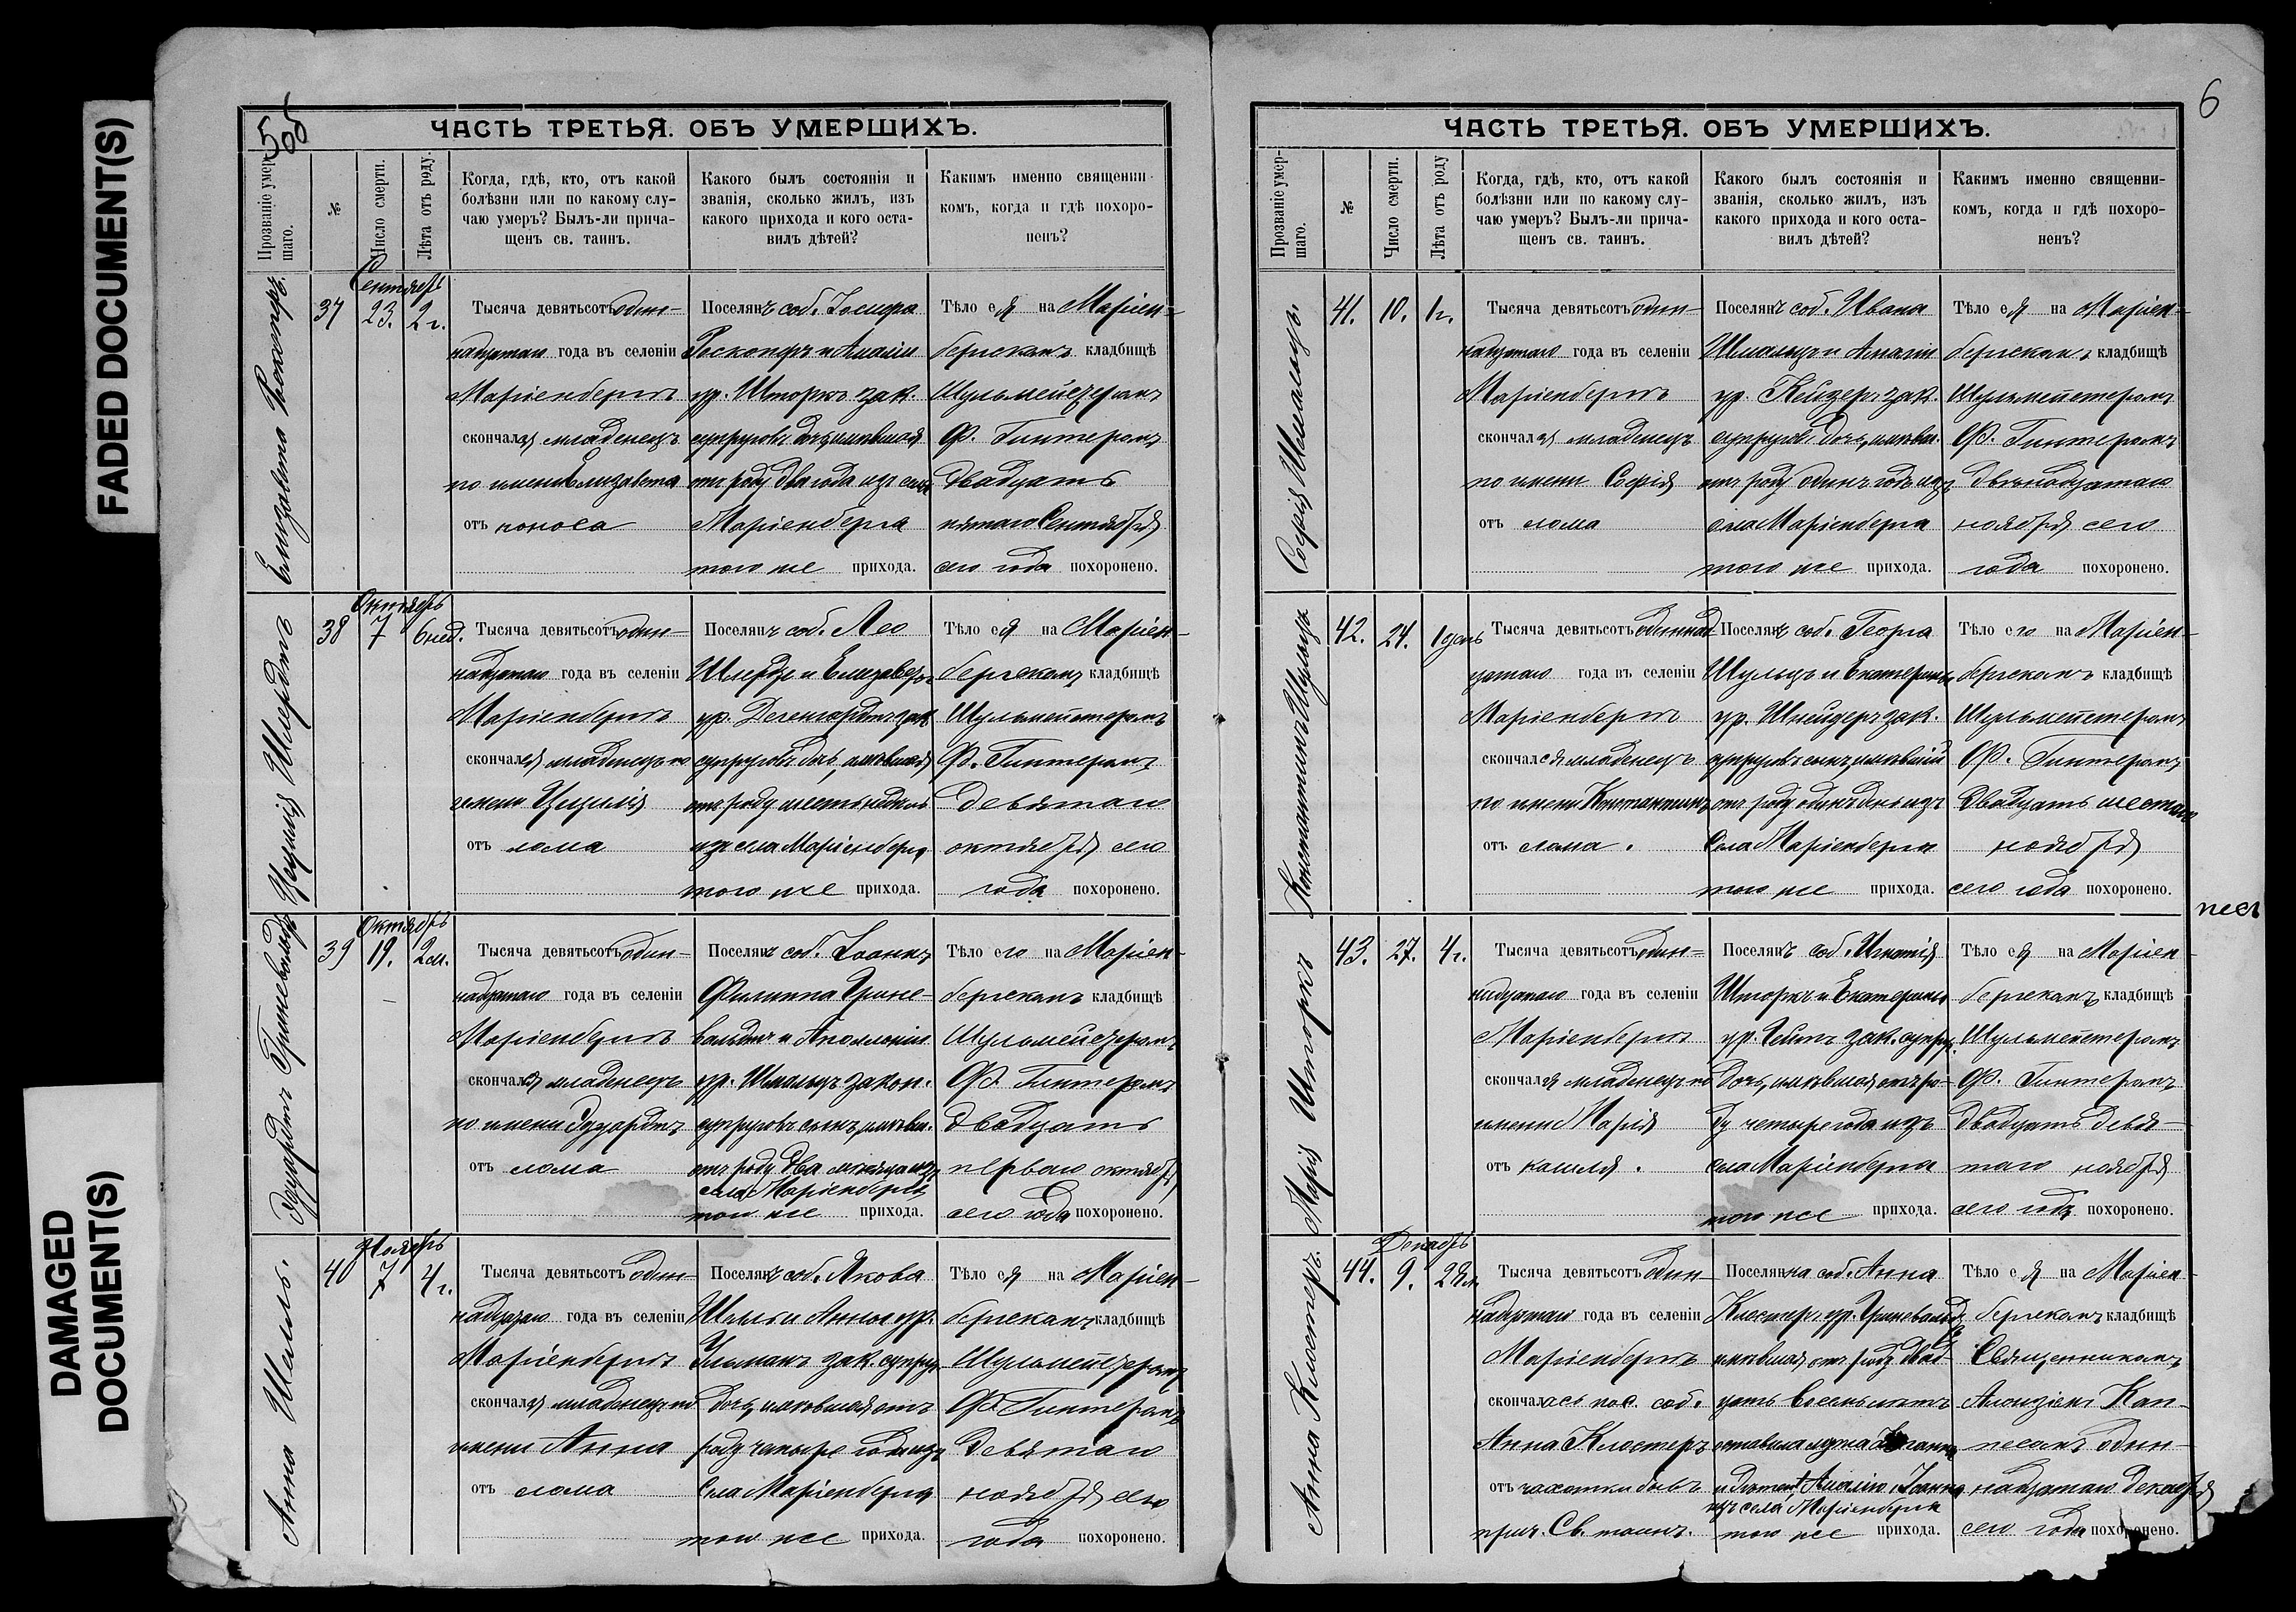 FADED DOCUMENT(S)
DAMAGED
DOCUMENT(S)
ЧАСТЬ ТРЕТЬЯ. ОБЪ УМЕРШИХЪ.
Прозваніе умер-
шаго.
№
Число смерти.
Лѣта отъ роду.
Когда, гдѣ, кто, отъ какой
болѣзни или по какому слу-
чаю умеръ? Былъ-ли прича-
щенъ св. таинъ.
Какого былъ состоянія и
званія, сколько жилъ, изъ
какого прихода и кого оста-
вилъ дѣтей?
Какимъ именно священни-
комъ, когда и гдѣ похоро-
ненъ?
Елизавета Роскопфъ.
Сентябрь
37
23.
2 г.
Тысяча девятьсотъ один-
надцатаго года въ селеніи
Маріенбергъ
скончался младенецъ
по имени Елизавета
отъ поноса
Поселянъ соб. Іосифа
Роскопфъ и Амаліи
ур. Шторкъ зак.
супруговъ дочь, имѣвшая
отъ роду два года изъ села
Маріенберга
того же прихода.
Тѣло ея на Маріен-
бергскомъ кладбищѣ
Шульмейстеромъ
Ф. Гинтеромъ
двадцать
пятаго Сентября
сего года похоронено.
Цецилія Шердтъ
Октябрь
38
7
6 нед.
Тысяча девятьсотъ один-
надцатаго года въ селеніи
Маріенбергъ
скончался младенецъ по
имени Цецилія
отъ лома
Поселянъ соб. Лео
и Елизаветы
ур. Дегенгардтъ зак.
супруговъ дочь, имѣвшая
отъ роду шесть недѣль
изъ села Маріенберга
того же прихода.
Тѣло ея на Маріен-
бергскомъ кладбищѣ
Шульмейстеромъ
Ф. Гинтеромъ
девятаго
октября сего
года похоронено.
Эдуардъ Гриневальдъ
Октябрь
39
19.
2 м.
Тысяча девятьсотъ один-
надцатаго года въ селеніи
Маріенбергъ
скончался младенецъ
по имени Эдуардтъ
отъ лома
Поселянъ соб. Іоаннъ
Филиппа Грине-
вальдтъ и Аполлоніи
ур. Шмальцъ закон.
супруговъ сынъ, имѣвш.
отъ роду два мѣсяца изъ
села Маріенбергъ
того же прихода.
Тѣло его на Маріен-
бергскомъ кладбищѣ
Шульмейстеромъ
Ф. Гинтеромъ
двадцать
перваго октября
сего года похоронено.
Анна Шелль.
Ноябрь
40
7
4 г.
Тысяча девятьсотъ один-
надцатаго года въ селеніи
Маріенбергъ
скончался младенецъ по
имени Анна
отъ лома
Поселянъ соб. Якова
и Анны ур.
Ульманъ зак. супруг.
дочь, имѣвшая отъ
роду четыре года изъ
села Маріенберга
того же прихода.
Тѣло ея на Маріен-
бергскомъ кладбищѣ
Шульмейстеромъ
Ф. Гинтеромъ
девятаго
ноября сего
года похоронено.
6
ЧАСТЬ ТРЕТЬЯ. ОБЪ УМЕРШИХЪ.
Прозваніе умер-
шаго.
№
Число смерти.
Лѣта отъ роду
Когда, гдѣ, кто, отъ какой
болѣзни или по какому слу-
чаю умеръ? Былъ-ли прича-
щенъ св. таинъ.
Какого былъ состоянія и
званія, сколько жилъ, изъ
какого прихода и кого оста-
вилъ дѣтей?
Какимъ именно священни-
комъ, когда и гдѣ похоро-
ненъ?
Софія Шмальцъ.
41.
10.
1 г.
Тысяча девятьсотъ один-
надцатаго года въ селеніи
Маріенбергъ
скончался младенецъ
по имени Софія
отъ лома
Поселянъ соб. Ивана
Шмальцъ и Амаліи
ур. Кейзеръ зак.
супругов. дочь, имѣвш.
отъ роду одинъ годъ изъ
села Маріенберга
того же прихода.
Тѣло ея на Маріен-
бергскомъ кладбищѣ
Шульмейстеромъ
Ф. Гинтеромъ
двѣнадцатаго
ноября сего
года похоронено.
Константинъ Шульцъ
42.
24.
1 день
Тысяча девятьсотъ одиннад-
цатаго года въ селеніи
Маріенбергъ
скончался младенецъ
по имени Константинъ
отъ лома.
Поселянъ соб. Георга
Шульцъ и Екатерины
ур. Шнейдеръ зак.
супруговъ сынъ, имѣвшій
отъ роду одинъ день изъ
села Маріенберга
того же прихода.
Тѣло его на Маріен-
бергскомъ кладбищѣ
Шульмейстеромъ
Ф. Гинтеромъ
двадцать шестаго
ноября
сего года похоронено.
Марія Шторкъ
43.
27.
4 г.
Тысяча девятьсотъ один-
надцатаго года въ селеніи
Маріенбергъ
скончался младенецъ по
имени Марія
отъ кашля.
Поселянъ соб. Игнатія
Шторкъ и Екатерины
ур. зак. супруг.
дочь, имѣвшая отъ ро-
ду четыре года изъ
села Маріенберга
того же прихода.
Тѣло ея на Маріен-
бергскомъ кладбищѣ
Шульмейстеромъ
Ф. Гинтеромъ
двадцать девя-
таго ноября
сего года похоронено.
Анна Клостеръ.
Декабрь
44.
9.
28 л.
Тысяча девятьсотъ один-
надцатаго года въ селеніи
Маріенбергъ
скончалась пос. соб.
Анна Клостеръ
отъ чахотки бывъ
прич. Св. таинъ.
Поселянка соб. Анна
Клостеръ ур. Гриневальдъ
имѣвшая отъ роду двад-
цать восемь лѣтъ
оставила мужа Іоганна
и дѣтей: Амалію, Іоанна
изъ села Маріенберга
того же прихода.
Тѣло ея на Маріен-
бергскомъ кладбищѣ
Священникомъ
Алоизіемъ Кап-
песомъ один-
надцатаго декабря
сего года похоронено.